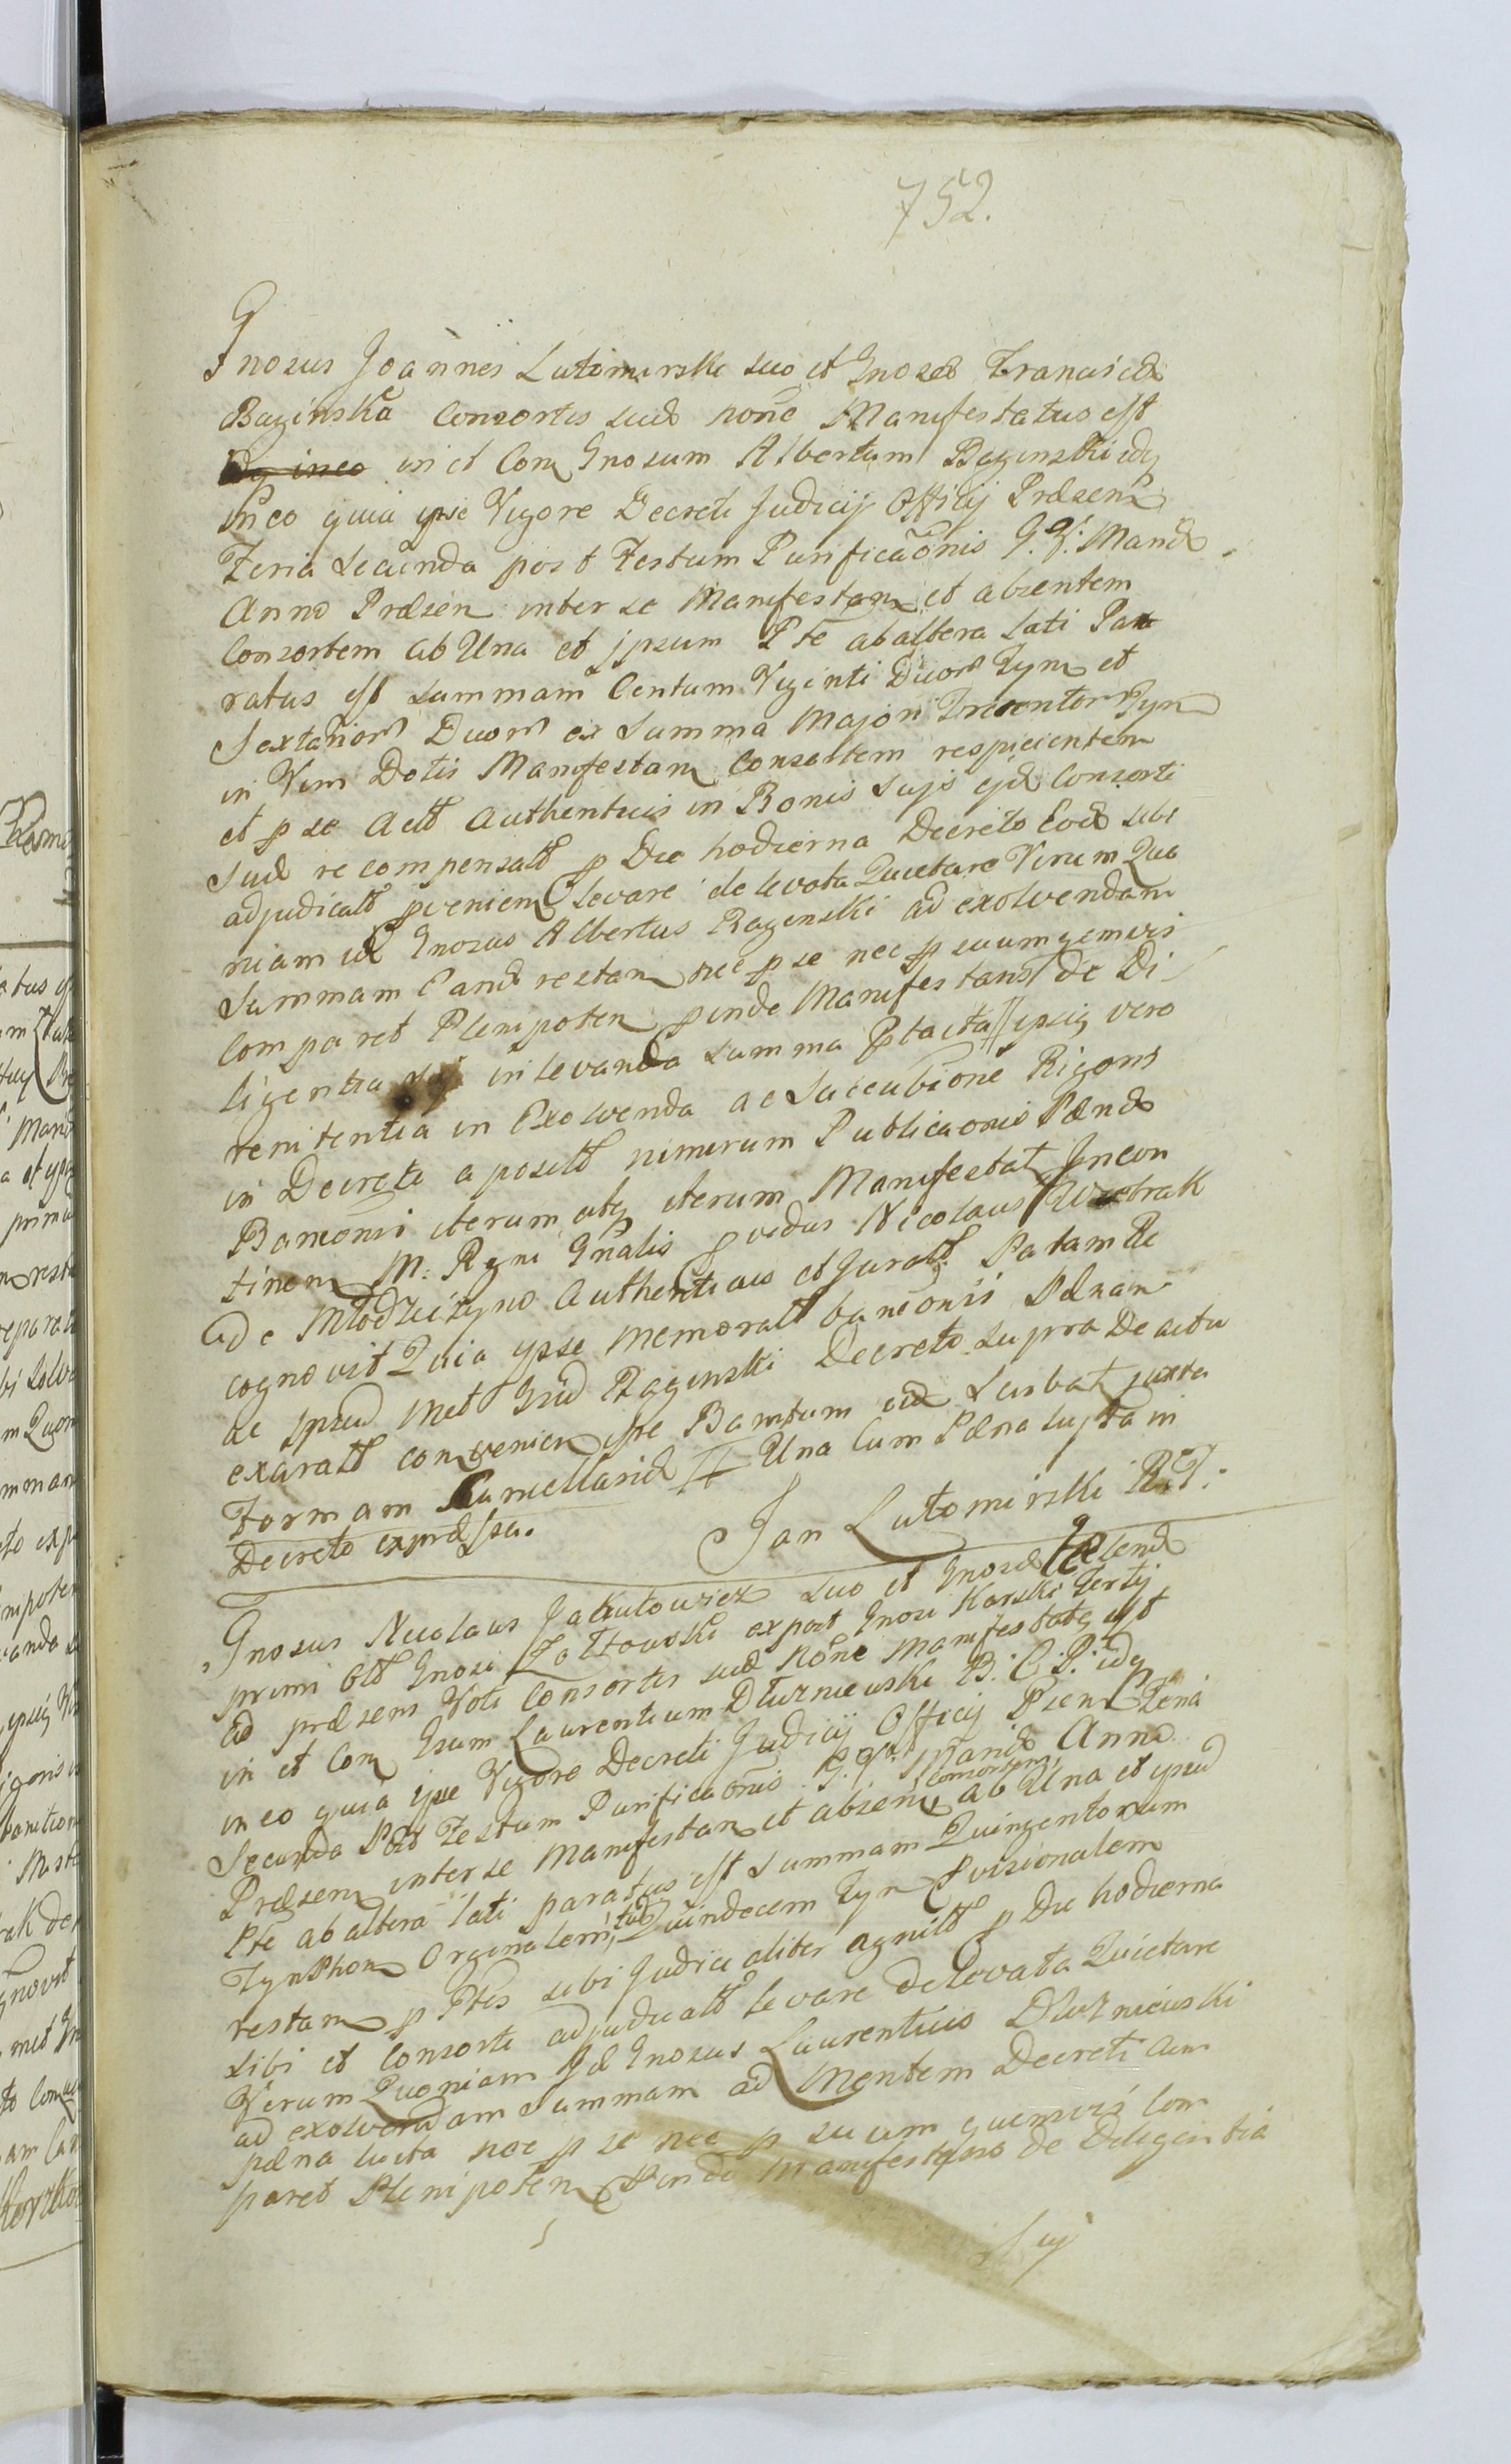 752.
Gnosus Joannes Lutomirski suo et Gnosæ Franciscæ
Baginska Consortis suæ noñe Manifestatus est
in et Con Gnosum Albertum Baginski idq
in eo quia ipse Vigore Decreti Judicij Officij Præsen
Feria Secunda post Festum Purificaõnis G. V. Mariæ
Anno Præsen inter se Manifestan et absentem
Consortem ab Una et ipsum Pte ab altera lati Pa
ratus est summam Centum Viginti Duor Tyn et
Sextanior Duor ex Summa Majori Trecentor Tyn
in Vim Dotis Manifestan Consortem respicientem
et p se Actt Authenticis in Bonis Sujs ejd Consorti
suæ recompensatt p Die hodierna Decreto Eod sibi
adjudicatt pvenien levare de levata Quietare Verum Quo
niam id Gnosus Albertus Baginski ad exolvendam
Summam Eand restan nec p se nec p suum quemvis
Comparet Plenipoten pinde Manifestans de Di
ligentia sui in levanda summa Ptacta ipsiq vero
renitentia in Exolvenda ac Succubione Rigoris
in Decreto apositt nimirum Publicaonis Pænæ
Banionis iterum atq iterum Manifestat Incon
tinen M. Regni Gnalis pvidus Nicolaus Wietrak
de Młodzieszyno Authenticus et Juratt Palam Re
cognovit Quia ipse Memoratt banionis Pænam
ac ipsud Met Gnd Baginski Decreto supra De actu
exaratt convenien esse Banitum eid Scribat juxta
Formam Cancellariæ Una Cum Pæna lujta in
Decreto expræssa.
Jan Lutomirski R.T.
Gnosus Nicolaus Jakutowicz suo et Gnosæ Helenæ
primi ott Gnosi Zołtowski expost Gnosi Karski Tertij
ad præsens Voti Consortis suæ Noñe Manifestatq est
in et Con Gsum Laurentium Dłuzniewski B. C. P. idq
in eo quia ipse Vigore Decreti Judicij Officij Psen Feria
Secunda Post Festum Purificaonis G. V. Mariæ Anno
Præsen inter se Manifestan et absen consortem ab Una et ipsud
Pte ab altera lati paratus est summam Quingentorum
Tynphon Orginalem, tud Quindecem Tyn pvisionalem
restan p Ptes sibi Judicialiter agnitt p Die hodierna
sibi et Consorti adjudicatt levare de levata Quietare
Verum Quoniam Id Gnosus Laurentius Dłuzniewski
ad exolvendam Summam ad Mentem Decreti cum
pæna luita nec p se nec p suum quemvis Com
paret Plenipoten Pinde Manifestans de Diligentia
Sui